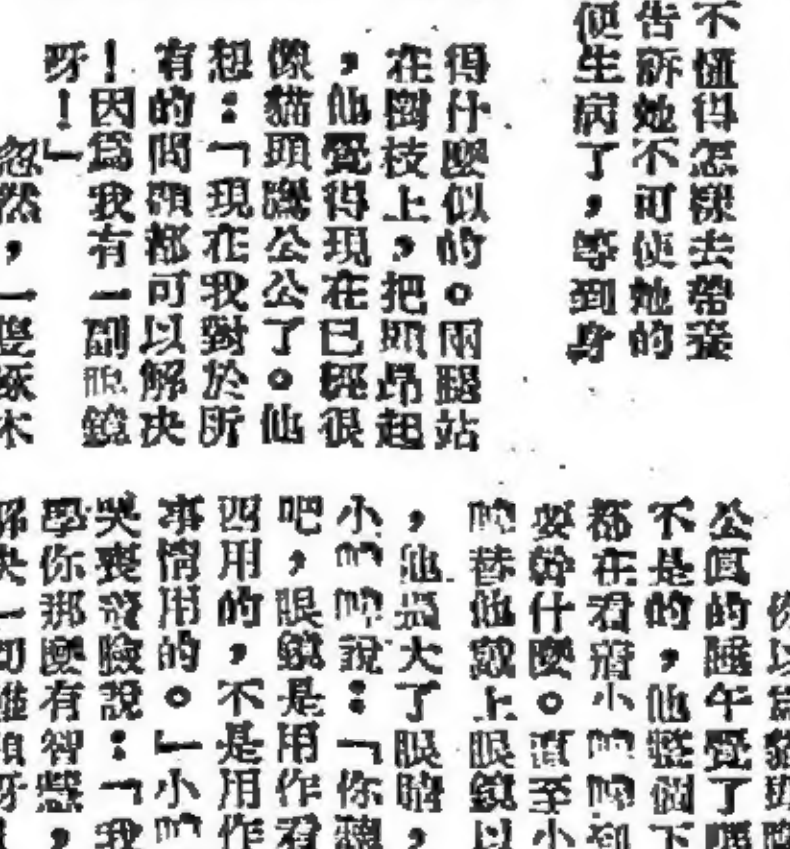 不懂得怎樣去帶發
告訴她不可使她的
便生病了，等到身
得什麼似的。兩腿站
在樹枝上，把頭昂起
，他覺得現在已經很
像貓頭鷹公公了。他
想：「現在我對於所
有的問題都可以解決
！因爲我有一副眼鏡
呀！」
忽然，一隻啄木
你以爲貓頭
公真的睡午覺了嗎
不是的，他整個下
都在看着小鴨鴨到
要幹什麼。直至小
鴨替他戴上眼鏡以
，他過大了眼睛，
小鴨鴨說：「你聽
吧，眼鏡是用作看
四用的，不是用作
事情用的。」小鴨
哭喪着臉說：「我
學你那麼有智慧，
解決一切難題呀